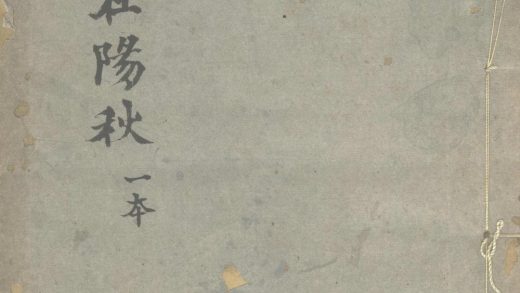 陽秋
一本